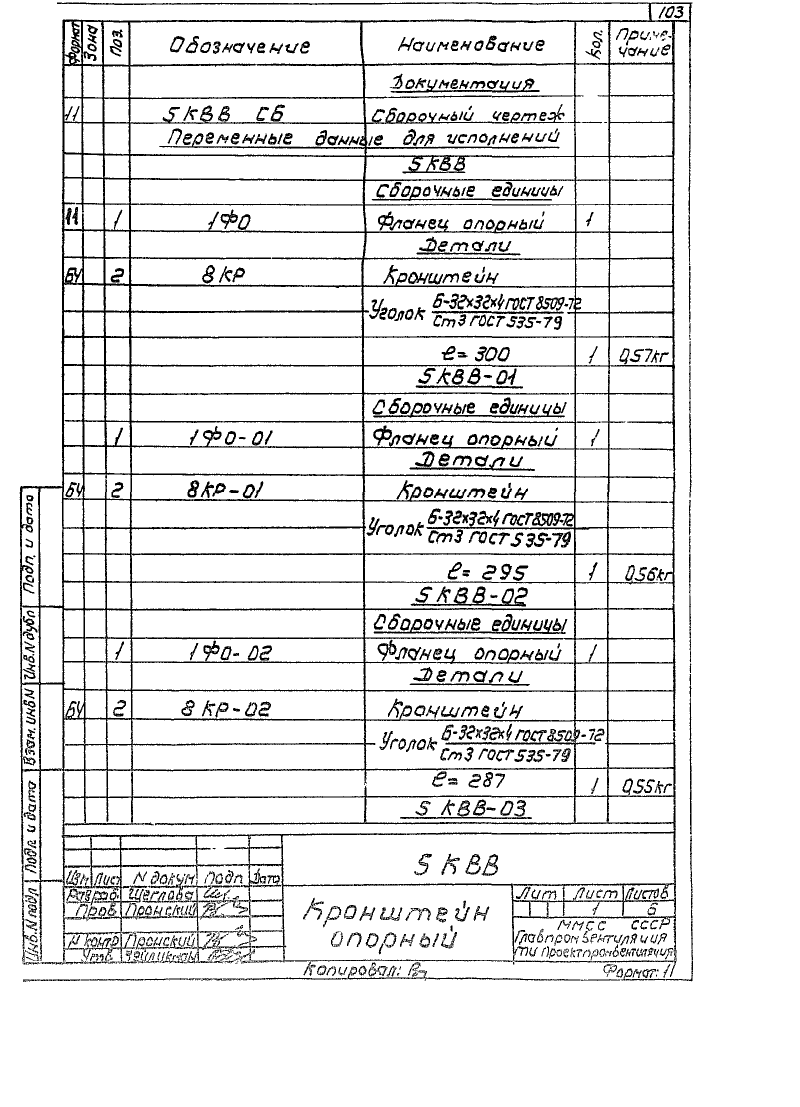 103
Формат Зона Поз. Обозначение Наименование Кол. Приме-
чание
Документация
11 5КВВ СБ Сборочный чертеж
Переменные данные для исполнений
5КВВ
Сборочные единицы
11 1 1ФО Фланец опорный 1
Детали
БЧ 2 8КР Кронштейн
Уголок Б-32х32х4 ГОСТ 8509-72
Ст3 ГОСТ 535-79
ℓ= 300 1 0,57кг
5КВВ-01
Сборочные единицы
1 1ФО-01 Фланец опорный 1
Детали
БЧ 2 8КР-01 Кронштейн
Уголок Б-32х32х4 ГОСТ 8509-72
Ст3 ГОСТ 535-79
ℓ= 295 1 0,56кг
5КВВ-02
Сборочные единицы
1 1ФО-02 Фланец опорный 1
Детали
БЧ 2 8КР-02 Кронштейн
Уголок Б-32х32х4 ГОСТ 8509-72
Ст3 ГОСТ 535-79
ℓ= 287 1 0,55кг
5КВВ-03
Инв.N подл Подп. и дата Взам. инв N Инв.N дубл Подп. и дата
5КВВ
Изм Лист N докум Подп Дата
Разраб Щеглова
Пров Пронский
Н контр Пронский
Утв
Кронштейн
опорный
Лит Лист Листов
1 6
ММСС СССР
Главпромвентиляция
ГПИ Проектпромвентиляция
Копировал:
Формат: 11